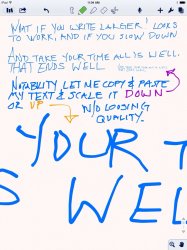 11:34 AM
WHAT IF YOU WRITE LARGER? LOOKS
TO WORK, AND IF YOU SLOW DOWN
AND TAKE YOUR TIME ALL IS WELL.
THAT ENDS WELL
NOTABILITY LET ME COPY & PASTE
MY TEXT & SCALE IT DOWN
OR UP
W/O LOOSING
QUALITY.
YOUR T
S WEL